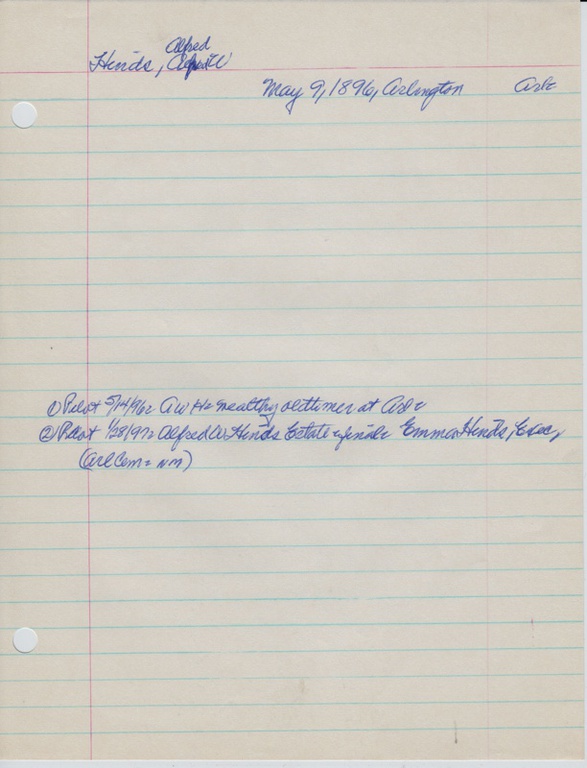 Alfred
Hinds, Alfred W
May 9, 1896, Arlington Arl=
① Pilot 5/14/96= A W H= wealthy oldtimer at Arl=
② Pilot 1/28/97= Alfred W. Hinds Estate = final= Emma Hinds, Exec,
(Arl Cem= nm)